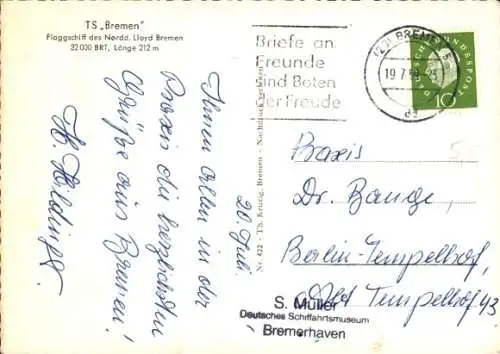 TS „Bremen“
Flaggschiff des Nordd. Lloyd Bremen
32 000 BRT, Länge 212 m
Ihnen allen in der
Praxis die herzlichsten
Grüße aus Bremen!
20. Juli.
Nr. 422 - Th. Kruzig, Bremen - Nachdruck verboten
Briefe an
Freunde
sind Boten
der Freude
BREMEN 5
19.7.
DEUTSCHE BUNDESPOST
10
Praxis
Dr. Bange,
Berlin-Tempelhof,
Alt Tempelhof 43
S. Müller
Deutsches Schiffahrtsmuseum
Bremerhaven